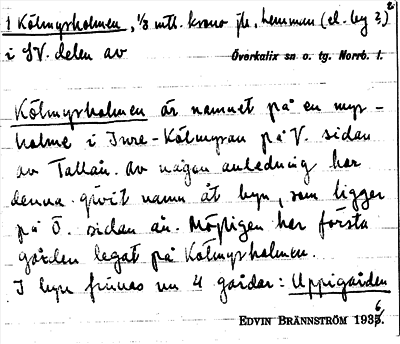 1 Kölmyrholmen, 1/8 mtl. krono jb. hemman (el. by?) 2
i SV. delen av Överkalix sn o. tg. Norrb. l.
Kölmyrholmen är namnet på en myr-
holme i Inre-Kölmyran på V. sidan
av Tallån. Av någon anledning har
denna givit namn åt byn, som ligger
på Ö. sidan ån. Möjligen har första
gården legat på Kölmyrholmen.
I byn finnas nu 4 gårdar: Uppigården
EDVIN BRÄNNSTRÖM 1936.